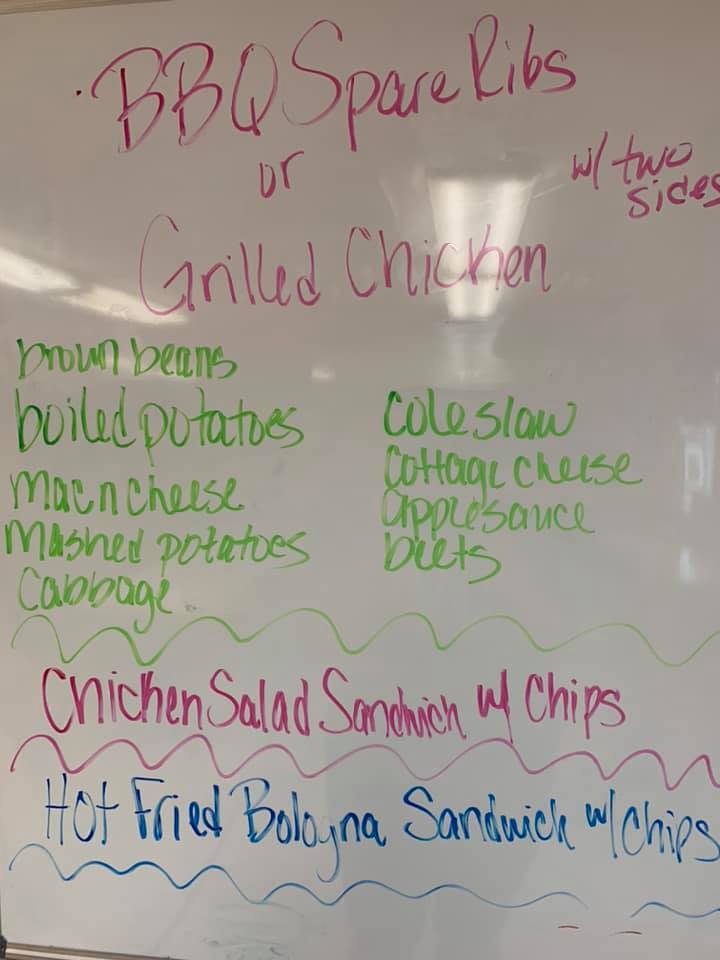 · BBQ Spare Ribs
or
w/ two
sides
Grilled Chicken
brown beans
boiled potatoes
Mac n Cheese
Mashed potatoes
Cabbage
Coleslaw
Cottage cheese
applesauce
beets
Chicken Salad Sandwich w/ Chips
Hot Fried Bologna Sandwich w/ Chips